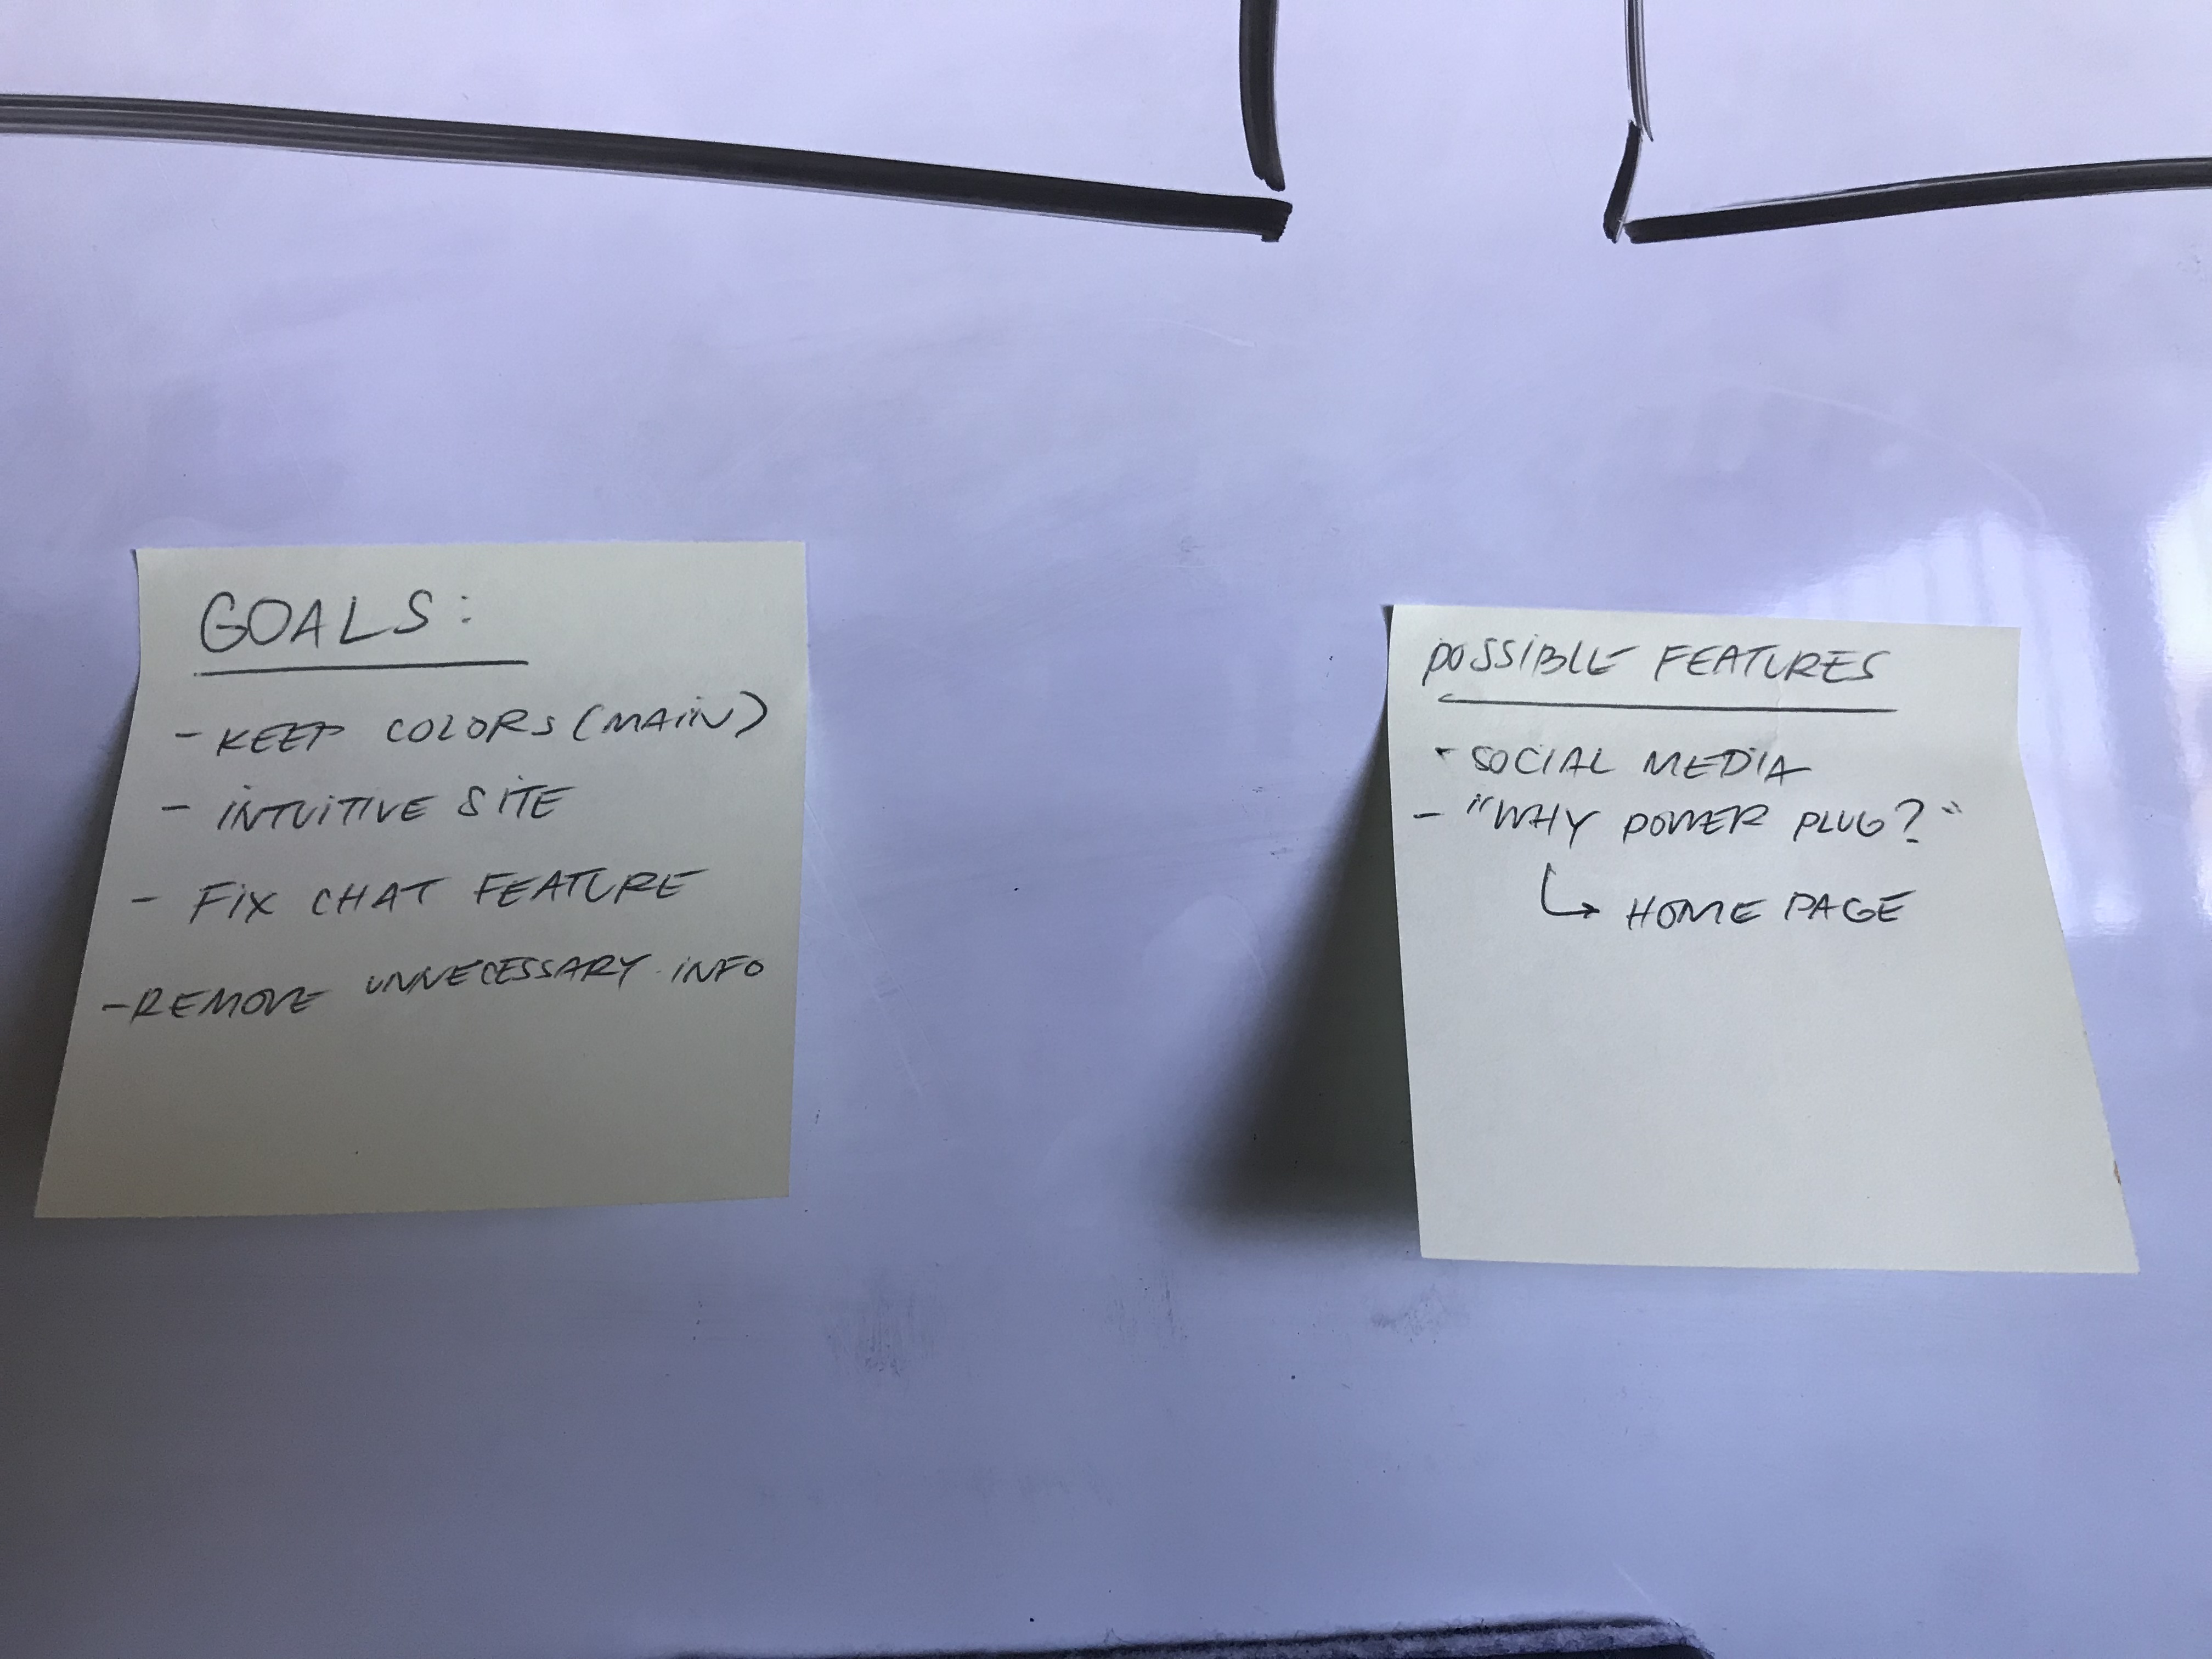 GOALS:
- KEEP COLORS (MAIN)
- INTUITIVE SITE
- FIX CHAT FEATURE
- REMOVE UNNECESSARY INFO
POSSIBLE FEATURES
- SOCIAL MEDIA
- "WHY POWER PLUG?"
↳ HOME PAGE